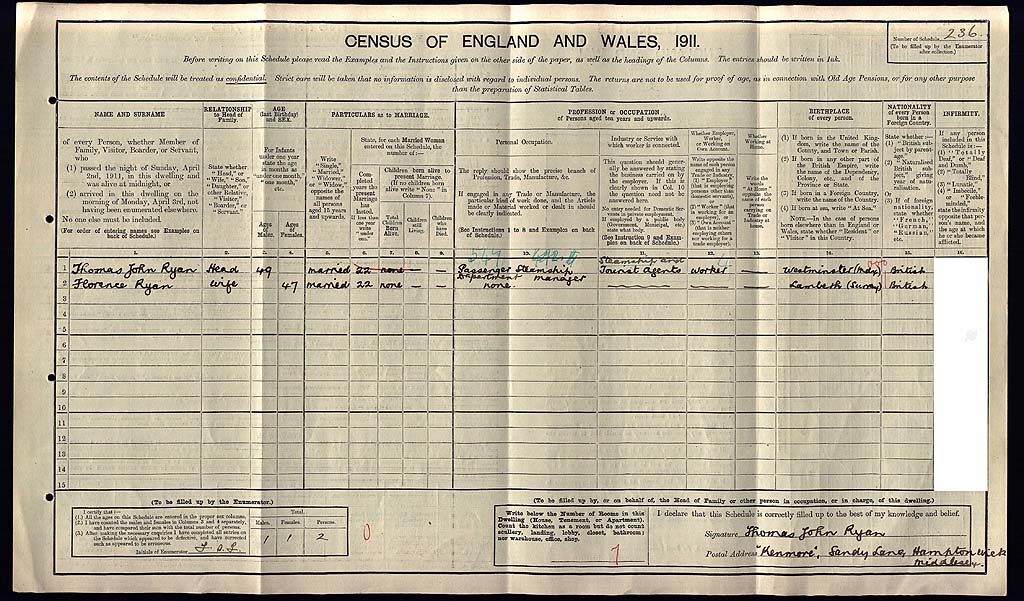 CENSUS OF ENGLAND AND WALES, 1911.
Number of Schedule 236.
(To be filled up by the Enumerator
after collection.)
Before writing on this Schedule please read the Examples and the Instructions given on the other side of the paper, as well as the headings of the Columns. The entries should be written in Ink.
The contents of the Schedule will be treated as confidential. Strict care will be taken that no information is disclosed with regard to individual persons. The returns are not to be used for proof of age, as in connection with Old Age Pensions, or for any other purpose
than the preparation of Statistical Tables.
NAME AND SURNAME
of every Person, whether Member of
Family, Visitor, Boarder, or Servant,
who
(1) passed the night of Sunday, April
2nd, 1911, in this dwelling and
was alive at midnight, or
(2) arrived in this dwelling on the
morning of Monday, April 3rd, not
having been enumerated elsewhere.
No one else must be included.
(For order of entering names see Examples on
back of Schedule.)
RELATIONSHIP
to Head of
Family.
State whether
"Head," or
"Wife," "Son,"
"Daughter," or
other Relative,
"Visitor,"
"Boarder," or
"Servant."
AGE
(last Birthday)
and SEX.
For Infants
under one year
state the age
in months as
"under one month,"
"one month,"
etc.
Ages of Males.
Ages of Females.
PARTICULARS as to MARRIAGE.
Write
"Single,"
"Married,"
"Widower,"
or "Widow,"
opposite the
names of all
persons aged
15 years and
upwards.
State, for each Married Woman
entered on this Schedule, the
number of:—
Completed
years the
present
Marriage
has
lasted.
If less
than
one year
write
"under
one."
Children born alive to
present Marriage.
(If no children born
alive write "None" in
Column 7).
Total Children Born Alive.
Children still Living.
Children who have Died.
PROFESSION or OCCUPATION
of Persons aged ten years and upwards.
Personal Occupation.
The reply should show the precise branch of
Profession, Trade, Manufacture, &c.
If engaged in any Trade or Manufacture, the
particular kind of work done, and the Article
made or Material worked or dealt in should
be clearly indicated.
(See Instructions 1 to 8 and Examples on back
of Schedule.)
Industry or Service with
which worker is connected.
This question should generally
be answered by stating
the business carried on by
the employer. If this is
clearly shown in Col. 10
the question need not be
answered here.
No entry needed for Domestic Servants
in private employment.
If employed by a public body
(Government, Municipal, etc.)
state what body.
(See Instruction 9 and Examples
on back of Schedule.)
Whether Employer,
Worker, or
Working on
Own Account.
Whether
Working at
Home.
Write the words
"At Home"
opposite the
name of each
person
carrying on
Trade or
Industry at
home.
BIRTHPLACE
of every person.
(1) If born in the United Kingdom,
write the name of the
County, and Town or Parish.
(2) If born in any other part of
the British Empire, write
the name of the Dependency,
Colony, etc., and of the
Province or State.
(3) If born in a Foreign Country,
write the name of the Country.
(4) If born at sea, write "At Sea."
NOTE.—In the case of persons
born elsewhere than in England or
Wales, state whether "Resident" or
"Visitor" in this Country.
NATIONALITY
of every Person
born in a
Foreign Country.
INFIRMITY.
1. 2. 3. 4. 5. 6. 7. 8. 9. 10. 11. 12. 13. 14. 15. 16.
1 Thomas John Ryan Head 49 married 22 none — — Passenger Steamship Department manager Steamship and Tourist agents worker — Westminster (Mdx) British
2 Florence Ryan Wife 47 married 22 none — — none. Lambeth (Surrey) British
3
4
5
6
7
8
9
10
11
12
13
14
15
(To be filled up by the Enumerator.)
I certify that:—
(1.) All the ages on this Schedule are entered in the proper sex columns.
(2.) I have counted the males and females in Columns 3 and 4 separately,
and have compared their sum with the total number of persons.
(3.) After making the necessary enquiries I have completed all entries on
the Schedule which appeared to be defective, and have corrected
such as appeared to be erroneous.
Initials of Enumerator
Total.
Males. Females. Persons.
1 1 2
0
(To be filled up by, or on behalf of, the Head of Family or other person in occupation, or in charge, of this dwelling.)
Write below the Number of Rooms in this
Dwelling (House, Tenement, or Apartment).
Count the kitchen as a room but do not count
scullery, landing, lobby, closet, bathroom;
nor warehouse, office, shop.
7
I declare that this Schedule is correctly filled up to the best of my knowledge and belief.
Signature Thomas John Ryan
Postal Address "Kenmore", Sandy Lane, Hampton Wick
Middlesex.